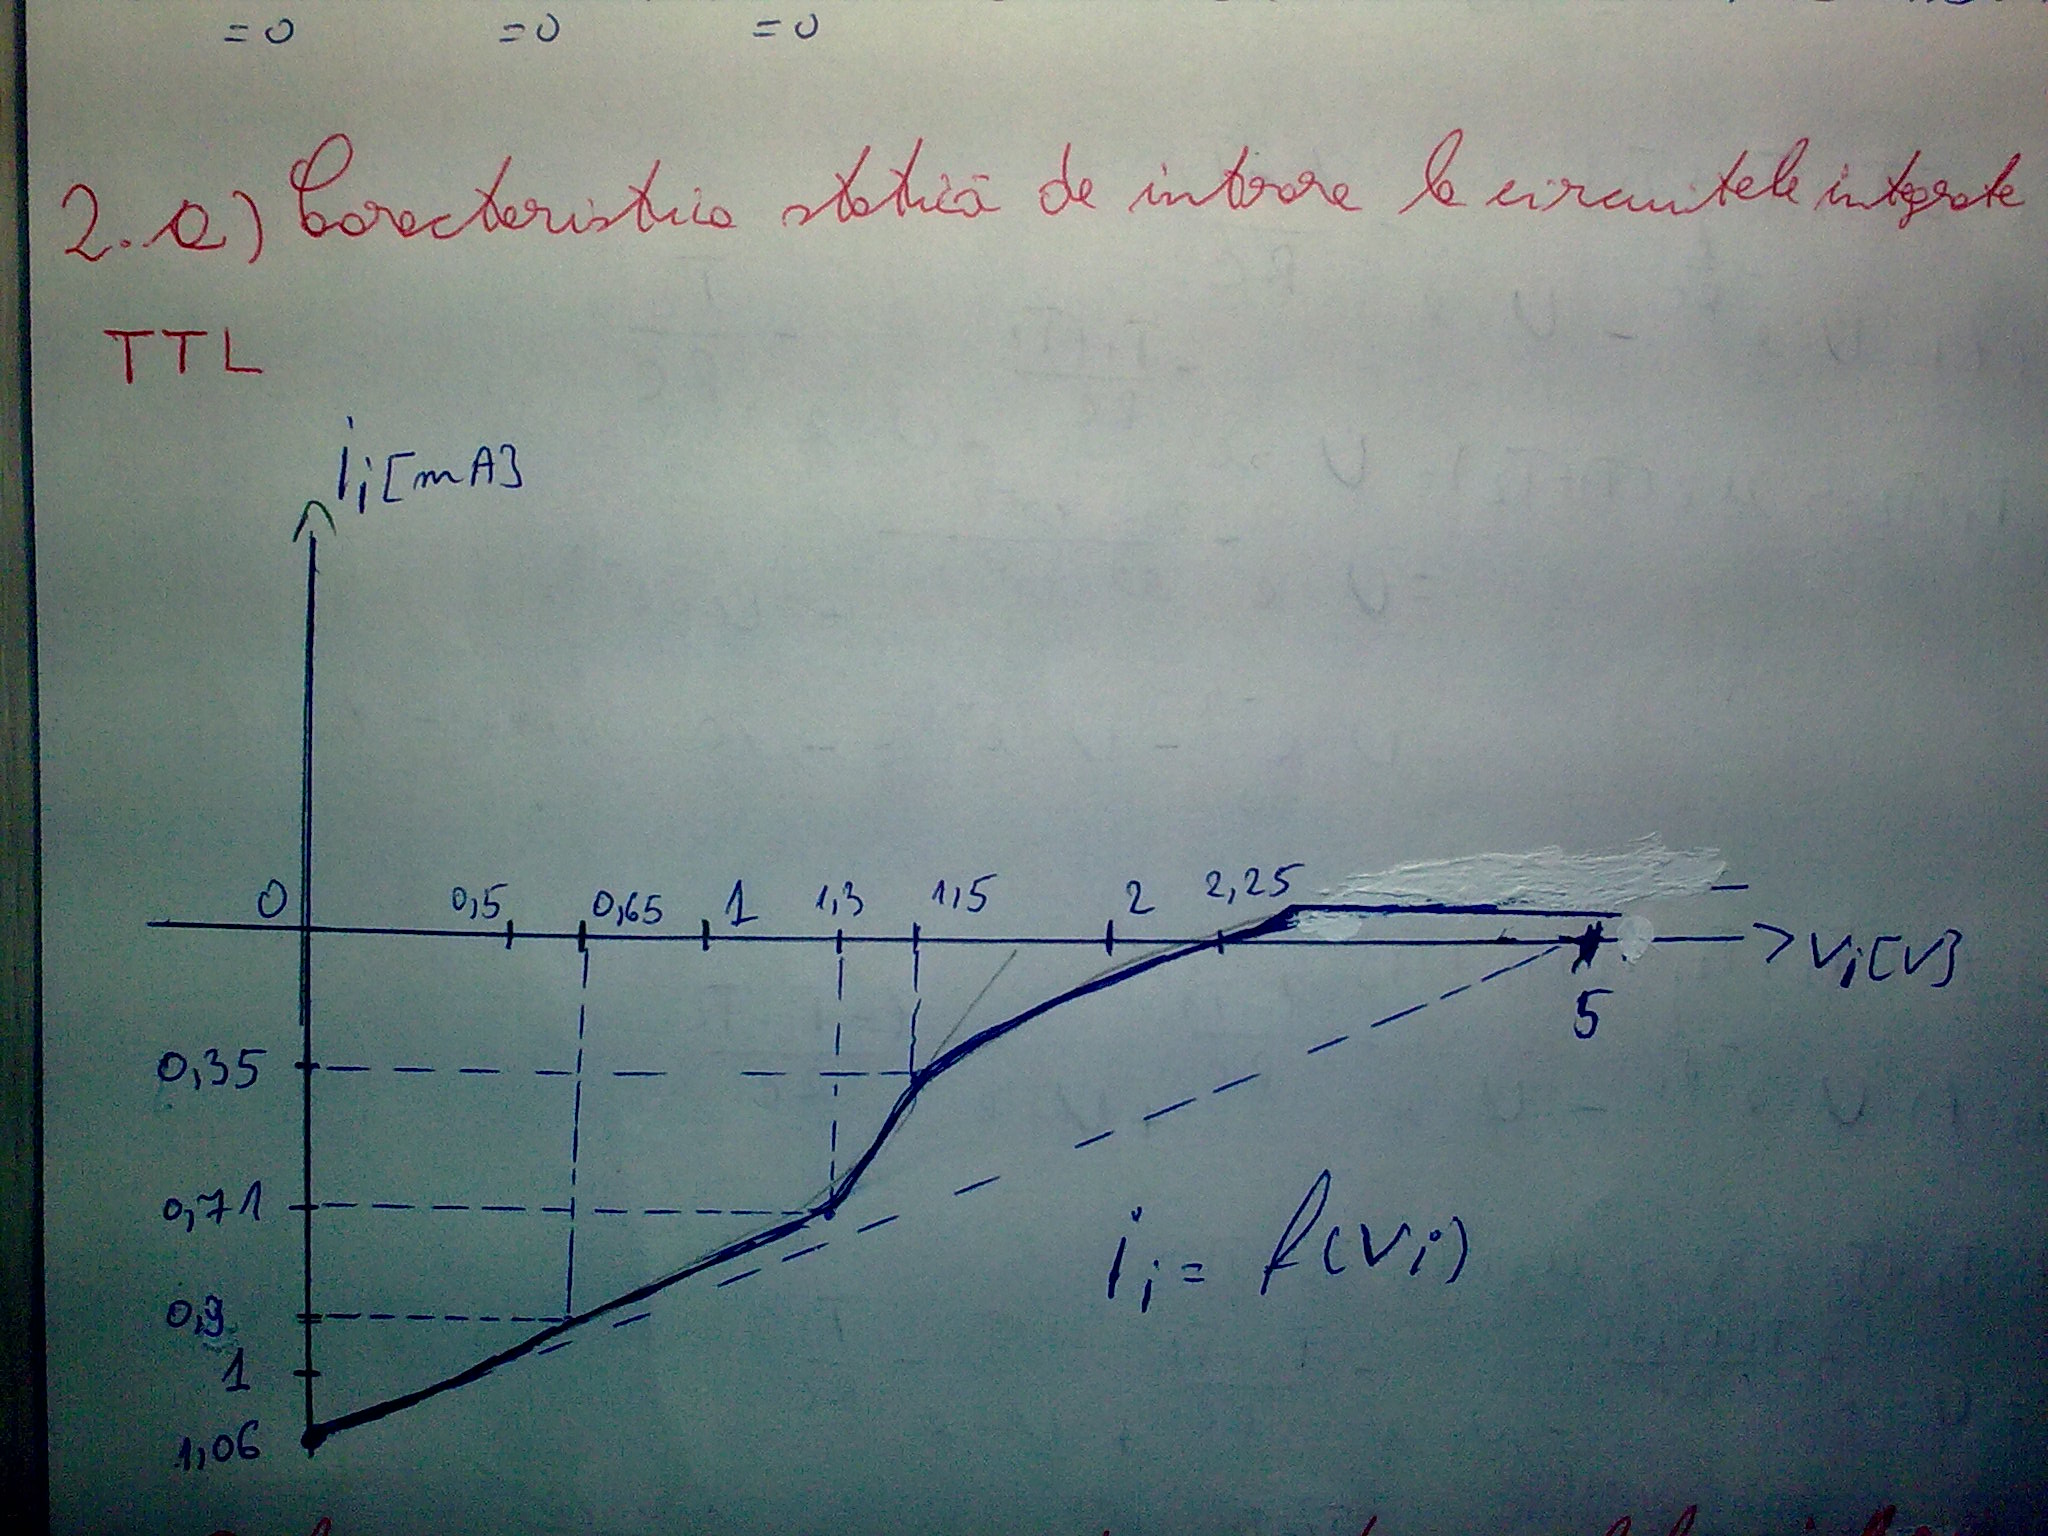 =0 =0 =0
2. a) Caracteristica statică de intrare la circuitele integrate
TTL
Ii [mA]
0 0,5 0,65 1 1,3 1,5 2 2,25
Vi [V]
5
0,35
0,71
Ii = f(Vi)
0,9
1
1,06